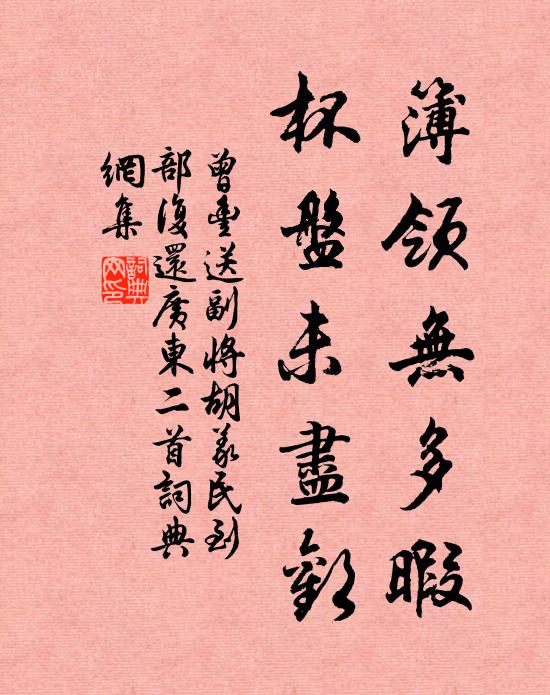 簿領無多暇
杯盤未盡歡
曾豐送副將胡義民到
部復還廣東二首詞典
網集
詞典網印